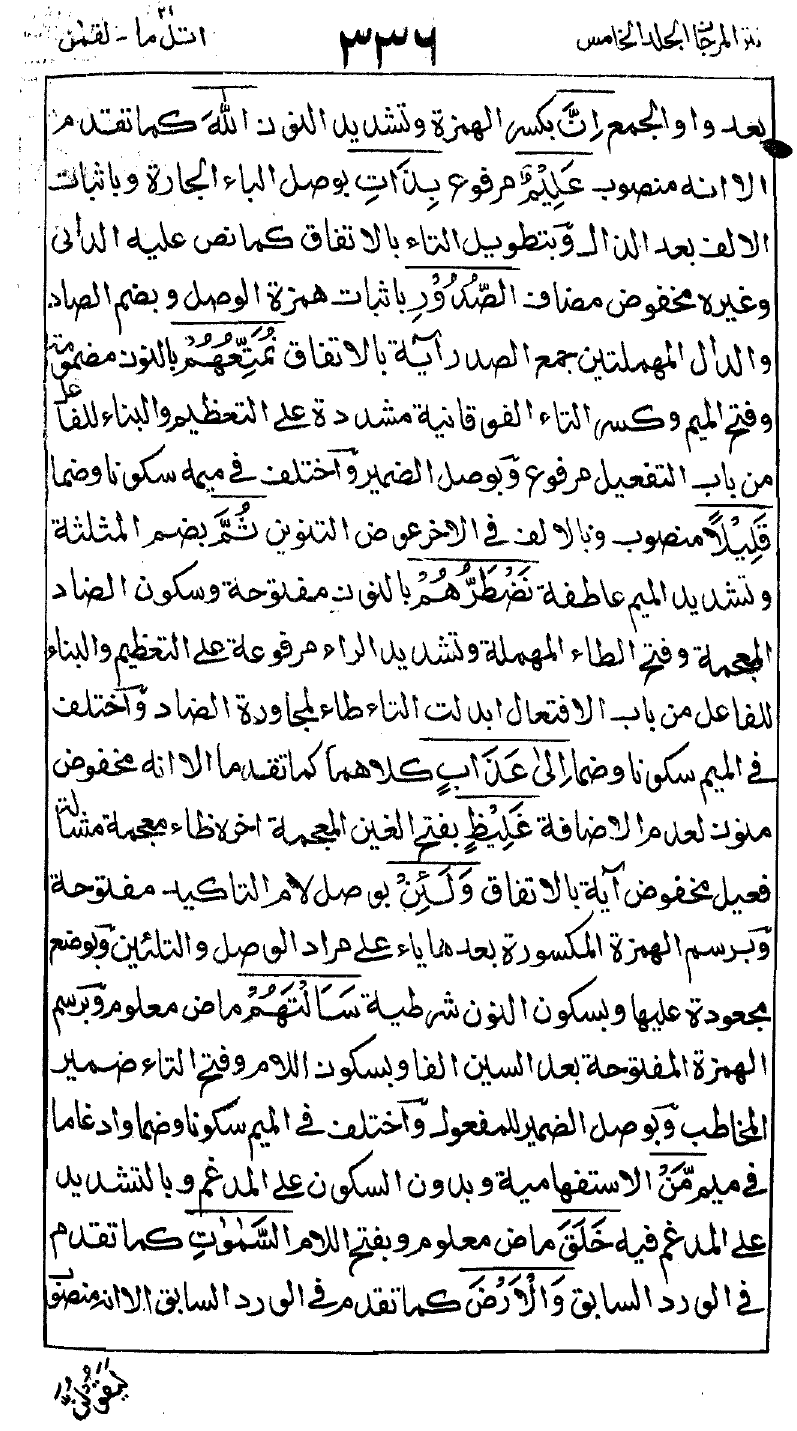 نثر المرجان الجلد الخامس ٣٣٦ اتل ما - لقمٰن ٢١
بعد واو الجمع اِنَّ بكسر الهمزة وتشديد النون اللّٰهَ كما تقدم
الا انه منصوب عَلِيْمٌ مرفوع بِذَاتِ بوصل الباء الجارة وباثبات
الالف بعد الذال وَبتطويل التاء بالاتفاق كما نص عليه الدانى
وغيره مخفوض مضاف الصُّدُوْرِ باثبات همزة الوصل وبضم الصاد
والدال المهملتين جمع الصدر آية بالاتفاق نُمَتِّعُهُمْ بالنون مضمومة
وفتح الميم وكسر التاء الفوقانية مشددة على التعظيم والبناء للفاعل
من باب التفعيل مرفوع وَبوصل الضمير وَاختلف فى ميمه سكونا وضما
قَلِيْلًا منصوب وبالالف فى الاخر عوض التنوين ثُمَّ بضم المثلثة
وتشديد الميم عاطفة نَضْطَرُّهُمْ بالنون مفتوحة وسكون الضاد
المعجمة وفتح الطاء المهملة وتشديد الراء مرفوعة على التعظيم والبناء
للفاعل من باب الافتعال ابدلت التاء طاء لمجاورة الضاد وَاختلف
فى الميم سكونا وضما اِلىٰ عَذَابٍ كلاهما كما تقدما الا انه مخفوض
منون لعدم الاضافة غَلِيْظٍ بفتح الغين المعجمة اخره ظاء معجمة مشالة
فعيل مخفوض آية بالاتفاق وَلَئِنْ بوصل لام التاكيد مفتوحة
وَبرسم الهمزة المكسورة بعدها ياء على مراد الوصل والتلئين وَبوضع
مجعودة عليها وبسكون النون شرطية سَاَلْتَهُمْ ماض معلوم وَبرسم
الهمزة المفتوحة بعد السين الفا وبسكون اللام وفتح التاء ضمير
المخاطب وَبوصل الضمير للمفعول وَاختلف فى الميم سكونا وضما وادغاما
فى ميم مَّنْ الاستفهامية وبدون السكون على المدغم وبالتشديد
على المدغم فيه خَلَقَ ماض معلوم وبفتح اللام السَّمٰوٰتِ كما تقدم
فى الورد السابق وَالْاَرْضَ كما تقدم فى الورد السابق الا انه منصوب
لَيَقُوْلُنَّ